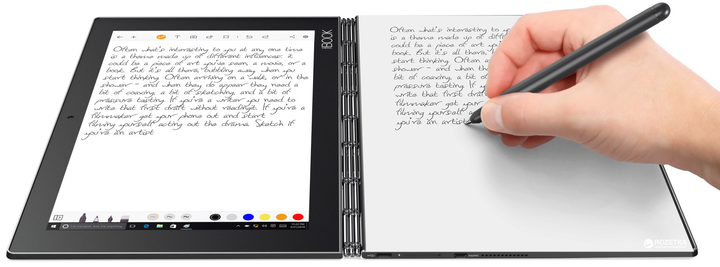 Often what's interesting to you at any one time
is a theme made up of different influences. it
could be a piece of art you've seen, a movie, or a
book. But it's all there, bubbling away when you
start thinking. Often arriving on a walk, or in the
shower – and when they do appear they need a
bit of coaxing, a bit of sketching, and a bit of
pressure testing. If you're a writer you need to
write that first draft without reading it. If you're a
filmmaker get your phone out and start
filming yourself acting out the drama. Sketch if
you're an artist
Often what's interesting to you at
is a theme made up of
could be a piece of art you
book. But it's all there
start thinking. Often
shower – and when
bit of coaxing, a bit
pressure testing. If
write that first
filmmaker get your
filming yourself
you're an artist
ROZETKA